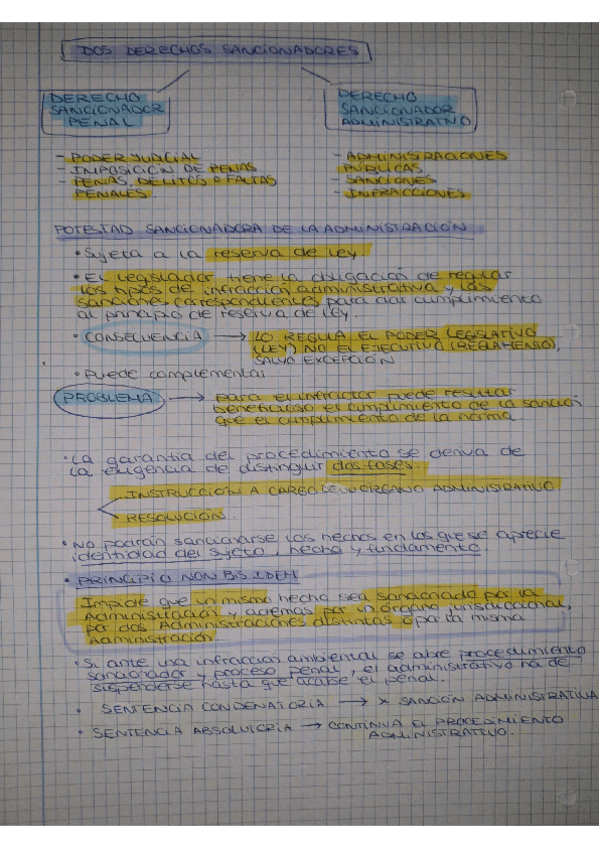 DOS DERECHOS SANCIONADORES
DERECHO
SANCIONADOR
PENAL
- PODER JUDICIAL
- IMPOSICIÓN DE PENAS
- PENAS, DELITOS O FALTAS
PENALES.
DERECHO
SANCIONADOR
ADMINISTRATIVO
- ADMINISTRACIONES
PÚBLICAS
- SANCIONES
- INFRACCIONES
POTESTAD SANCIONADORA DE LA ADMINISTRACIÓN
• Sujeta a la reserva de ley.
• El legislador tiene la obligación de regular
los tipos de infracción administrativa y las
sanciones correspondientes para dar cumplimiento
al principio de reserva de ley.
• CONSECUENCIA → LO REGULA EL PODER LEGISLATIVO
(LEY) NO EL EJECUTIVO (REGLAMENTO),
SALVO EXCEPCIÓN
• Puede complementar
PROBLEMA → para el infractor puede resultar
beneficioso el cumplimiento de la sanción
que el cumplimiento de la norma
• La garantía del procedimiento se deriva de
la exigencia de distinguir dos fases.
INSTRUCCIÓN A CARGO DE UN ÓRGANO ADMINISTRATIVO
RESOLUCIÓN
• No podrán sancionarse los hechos en los que se aprecie
identidad del sujeto, hecho y fundamento.
• PRINCIPIO NON BIS IDEM
Impide que un mismo hecho sea sancionado por la
Administración y además por un órgano jurisdiccional,
por dos Administraciones distintas o por la misma
Administración
• Si ante una infracción ambiental se abre procedimiento
sancionador y proceso penal, el administrativo ha de
suspenderse hasta que acabe el penal.
• SENTENCIA CONDENATORIA → X SANCIÓN ADMINISTRATIVA
• SENTENCIA ABSOLUTORIA → CONTINÚA EL PROCEDIMIENTO
ADMINISTRATIVO.